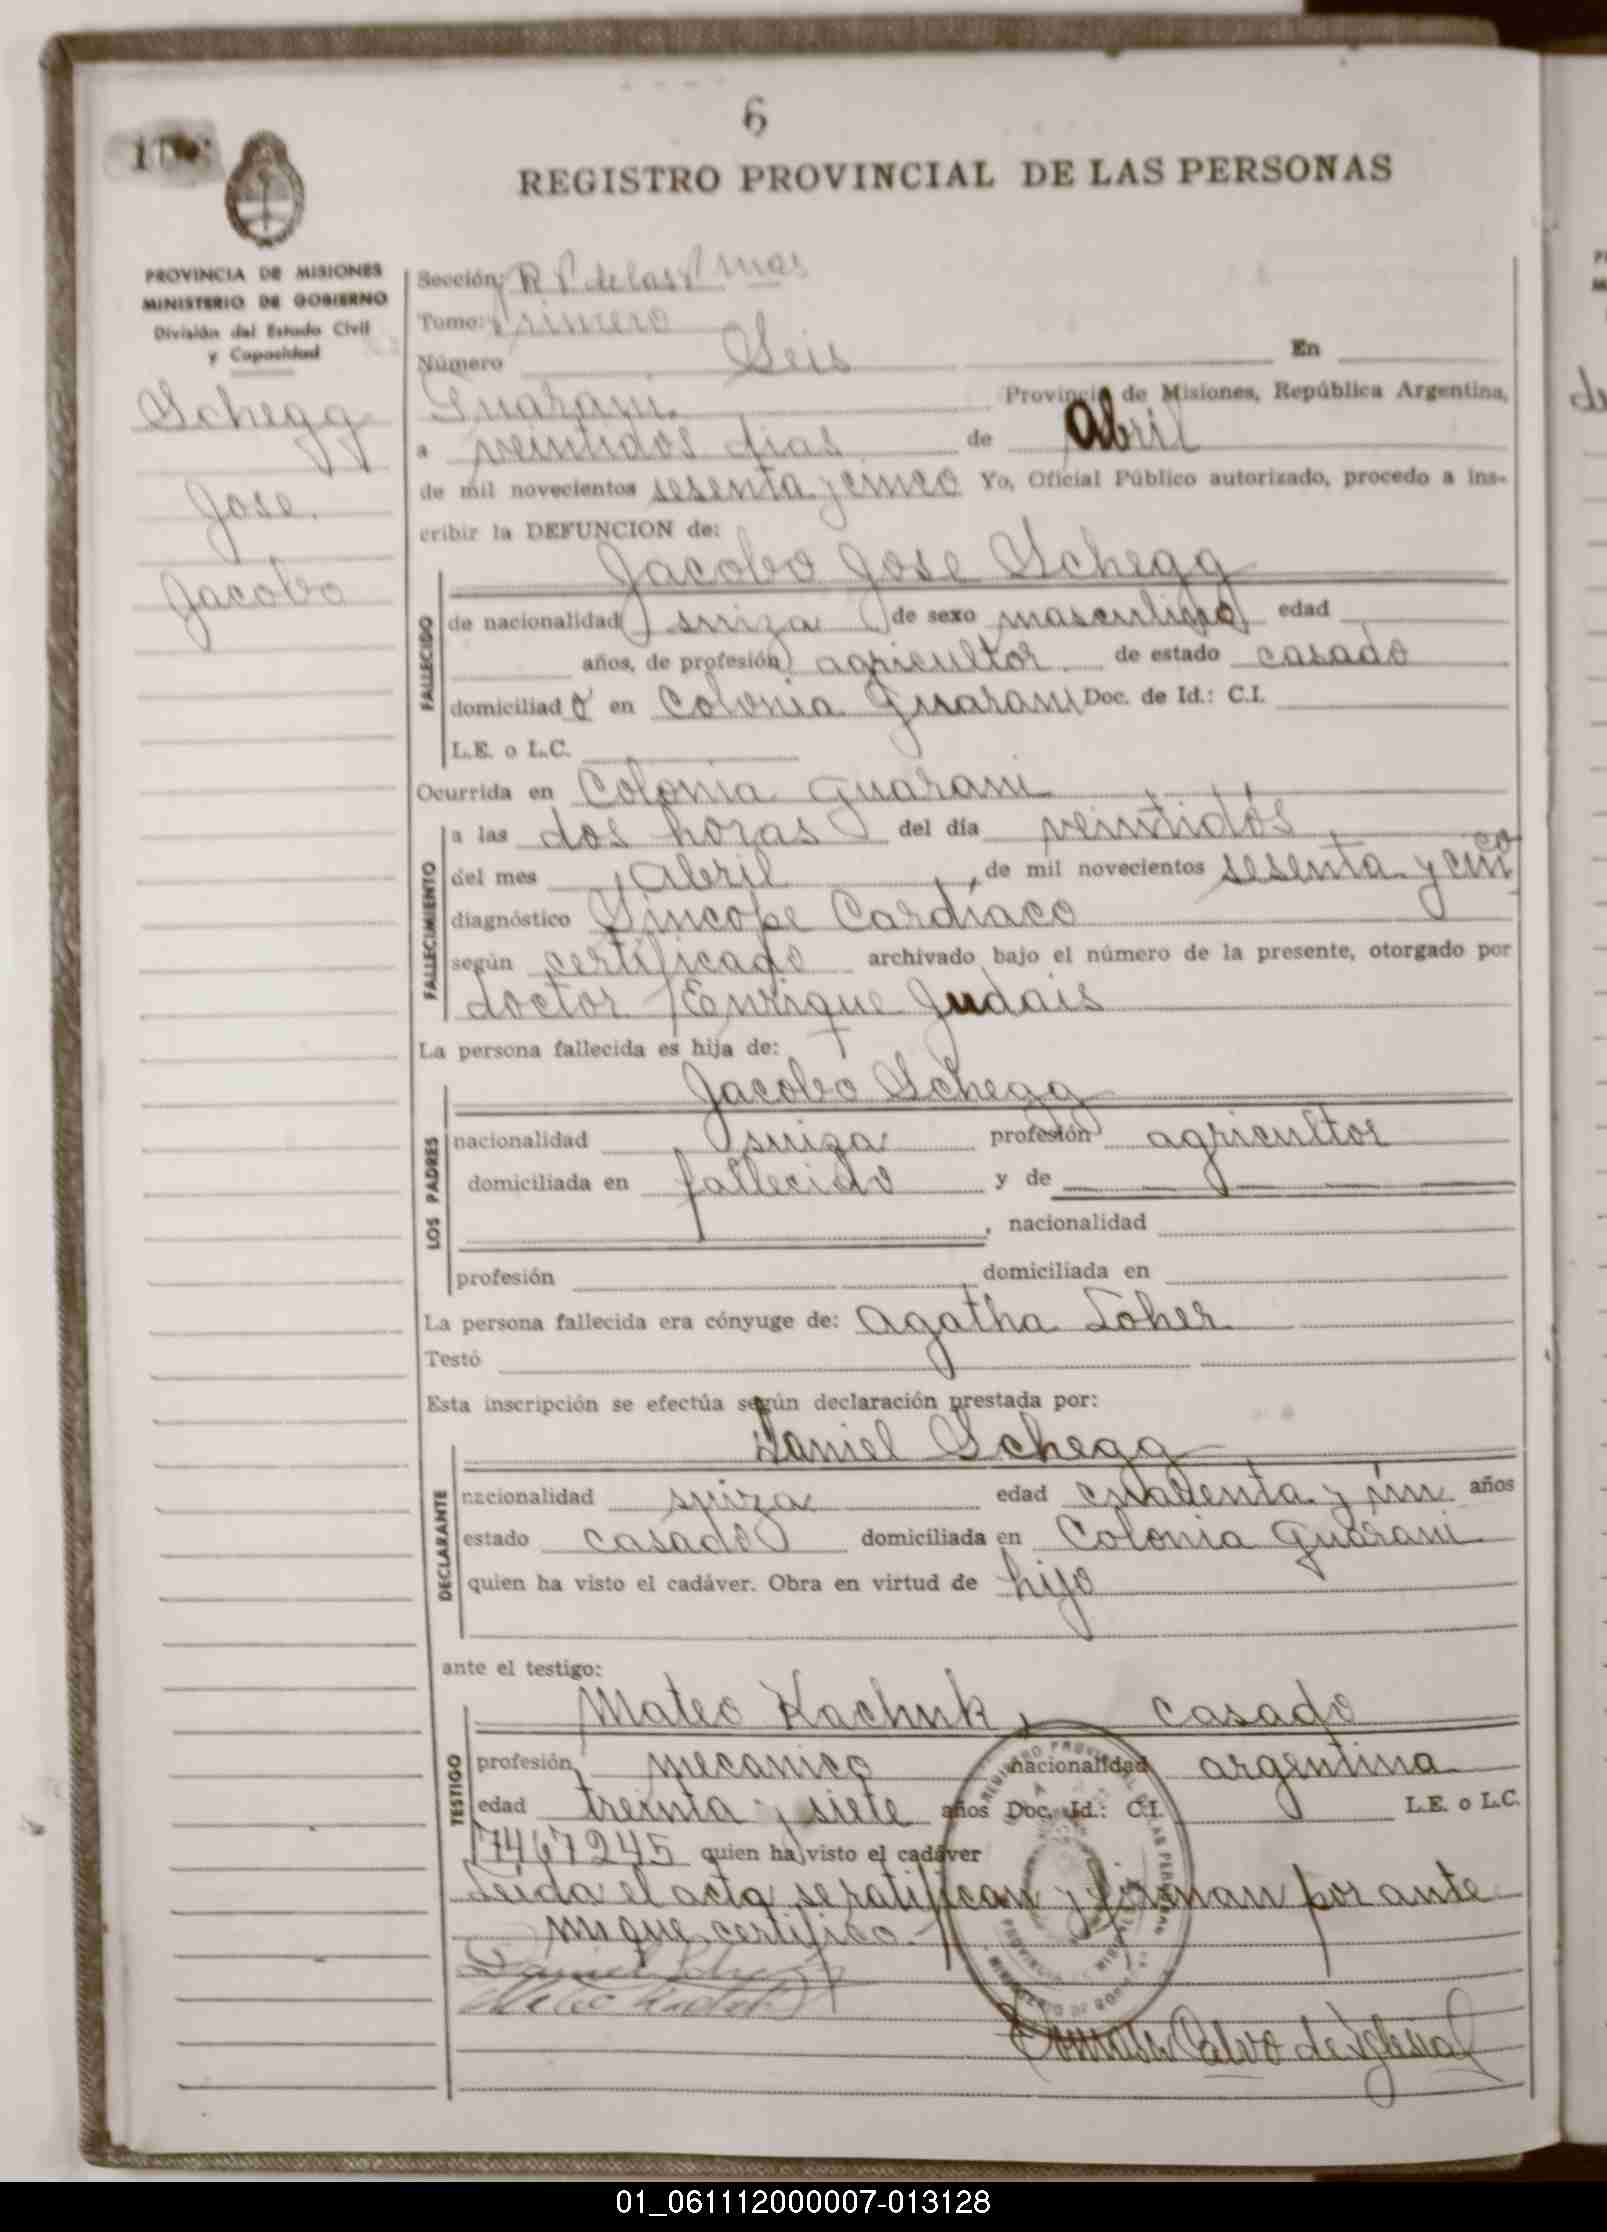 6
REGISTRO PROVINCIAL DE LAS PERSONAS
PROVINCIA DE MISIONES
MINISTERIO DE GOBIERNO
División del Estado Civil
y Capacidad
Schegg
Jose
Jacobo
Sección: R P de las
Tomo: Primero
Número Seis En
Guarani. Provincia de Misiones, República Argentina,
a veintidos dias de Abril
de mil novecientos sesenta y cinco Yo, Oficial Público autorizado, procedo a ins-
cribir la DEFUNCION de:
Jacobo Jose Schegg
FALLECIDO
de nacionalidad suiza de sexo masculino edad
años, de profesión agricultor de estado casado
domiciliado en Colonia Guarani Doc. de Id.: C.I.
L.E. o L.C.
Ocurrida en Colonia Guarani
FALLECIMIENTO
a las dos horas del día veintidós
del mes Abril, de mil novecientos sesenta y cinco
diagnóstico Síncope Cardíaco
según certificado archivado bajo el número de la presente, otorgado por
doctor Enrique Judais
La persona fallecida es hija de:
Jacobo Schegg
LOS PADRES
nacionalidad suiza profesión agricultor
domiciliada en fallecido y de
, nacionalidad
profesión domiciliada en
La persona fallecida era cónyuge de: Agatha Loher
Testó
Esta inscripción se efectúa según declaración prestada por:
Daniel Schegg
DECLARANTE
nacionalidad suiza edad cuarenta y un años
estado casado domiciliada en Colonia Guarani
quien ha visto el cadáver. Obra en virtud de hijo
ante el testigo:
Mateo Kachuk, casado
TESTIGO
profesión mecanico nacionalidad argentina
edad treinta y siete años Doc. Id.: C.I. L.E. o L.C.
7467245 quien ha visto el cadáver
Leida el acta se ratifican y firman por ante
mi que certifico.-
Daniel Schegg
Mateo Kachuk
Calvo de Iglesias
01_061112000007-013128